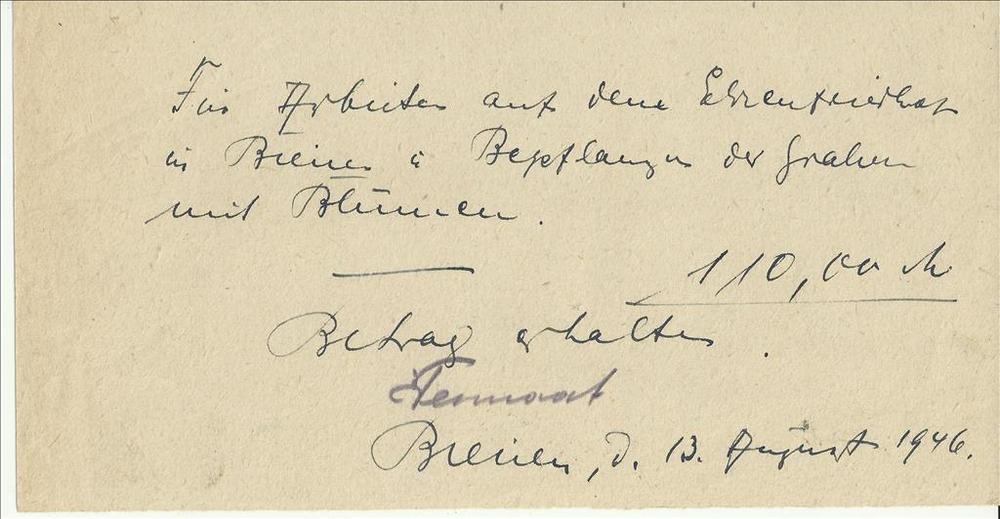 Für Arbeiten auf dem Ehrenfriedhof
in Bienen u Bepflanzen der Graben
mit Blumen.
110,00 M
Betrag erhalten.
Bienen, d. 13. August 1946.